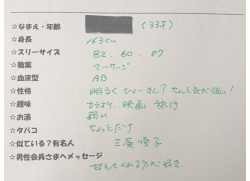 ☆なまえ・年齢 (33才)
☆身長 163cm
☆スリーサイズ 82.60.87
☆職業 マッサージ
☆血液型 AB
☆性格 明るく ちょっと気が強い!
☆趣味 映画 旅行
☆お酒 弱い
☆タバコ ちょっとだけ
☆似ている?有名人
☆男性会員さまへメッセージ
甘えてくれる方が好き